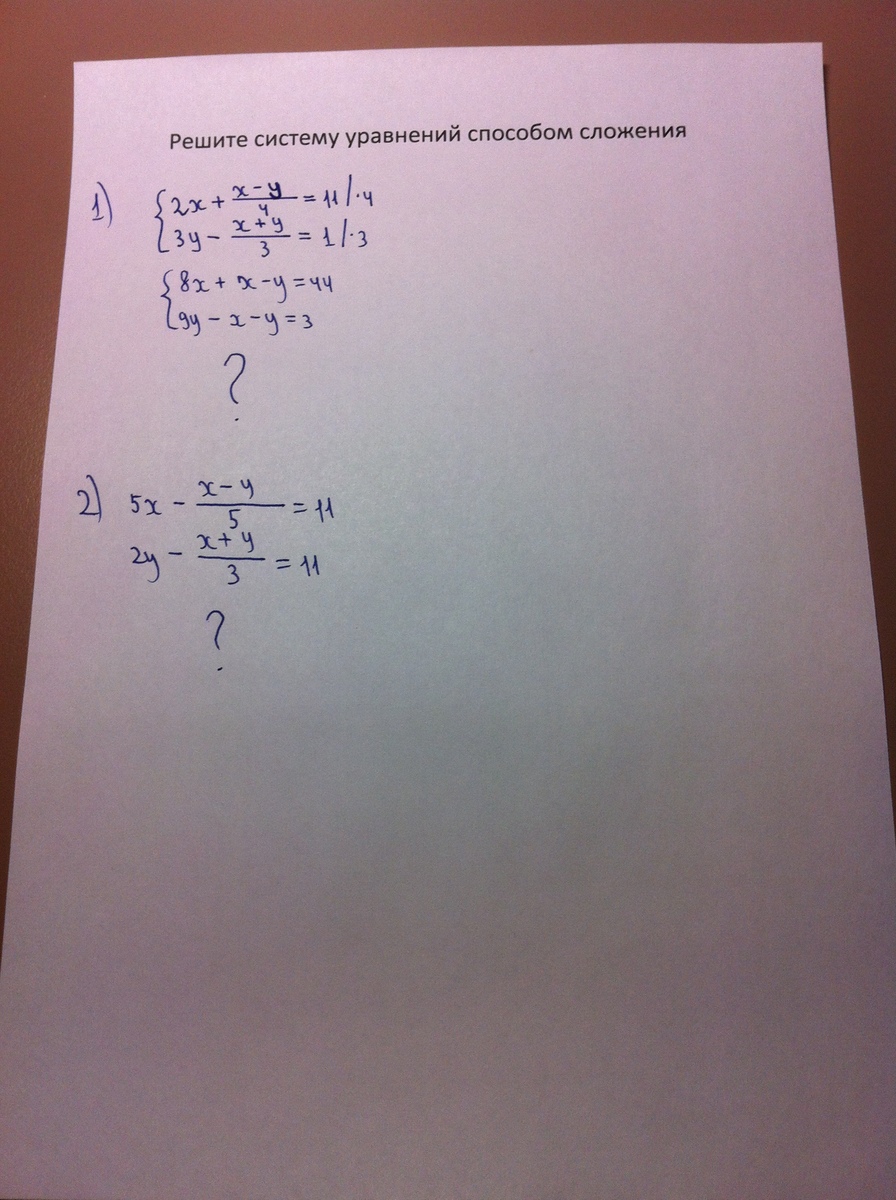 Решите систему уравнений способом сложения
1) { 2x + (x-y)/4 = 11 /·4
3y - (x+y)/3 = 1 /·3
{ 8x + x - y = 44
9y - x - y = 3
?
2) 5x - (x-y)/5 = 11
2y - (x+y)/3 = 11
?